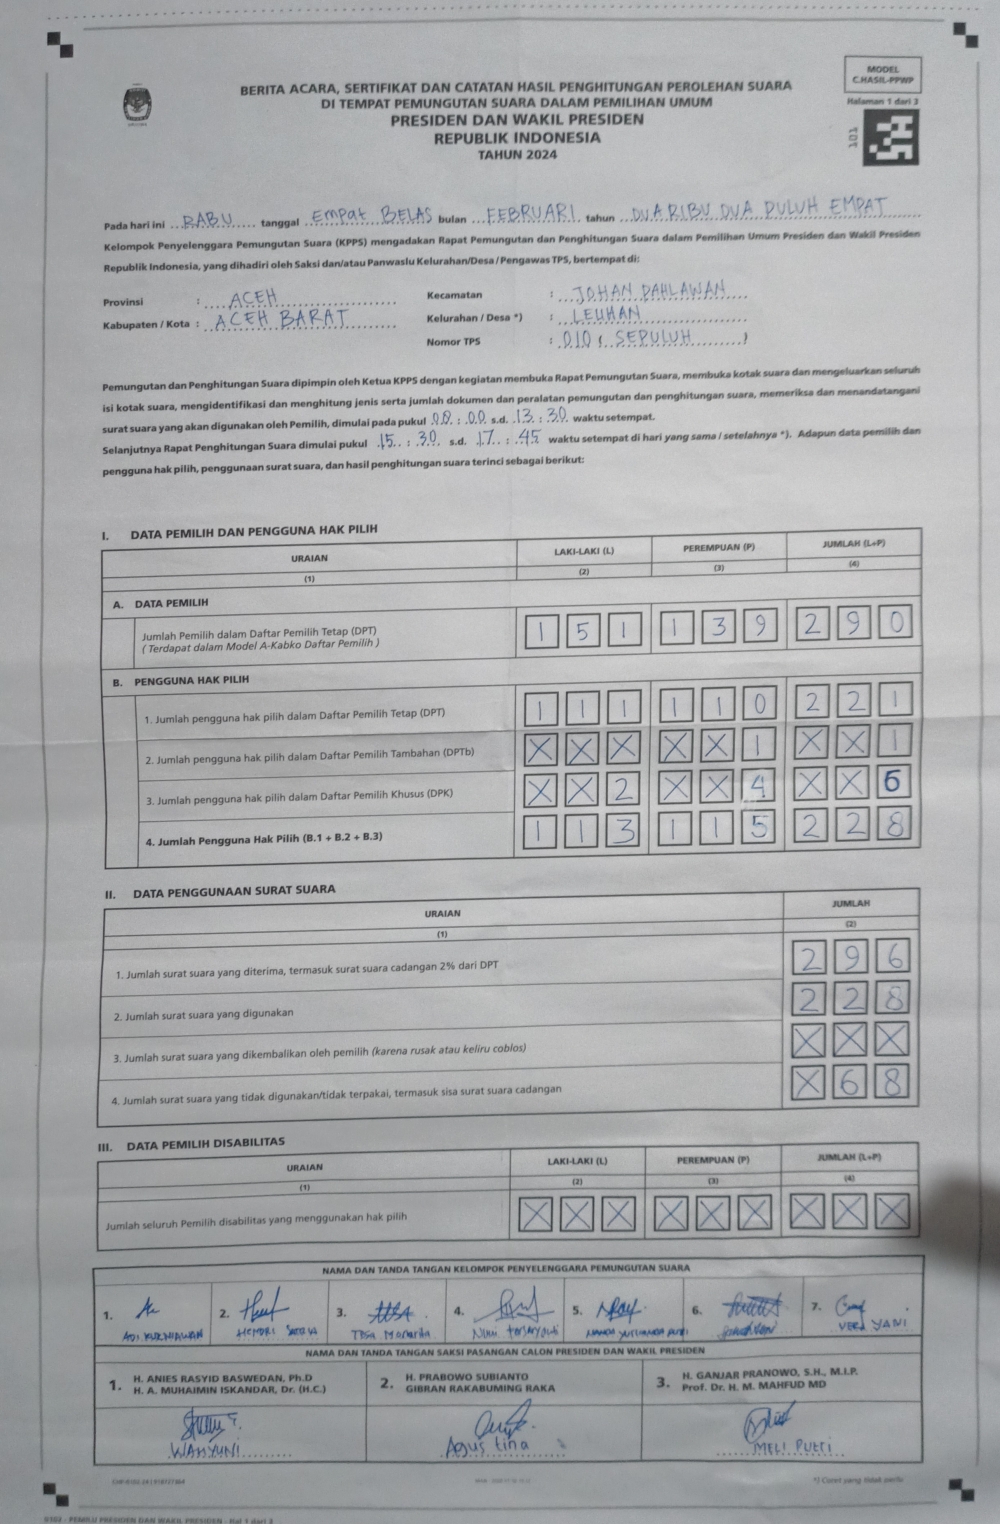 MODEL
C.HASIL-PPWP
Halaman 1 dari 3
101
BERITA ACARA, SERTIFIKAT DAN CATATAN HASIL PENGHITUNGAN PEROLEHAN SUARA
DI TEMPAT PEMUNGUTAN SUARA DALAM PEMILIHAN UMUM
PRESIDEN DAN WAKIL PRESIDEN
REPUBLIK INDONESIA
TAHUN 2024
Pada hari ini RABU tanggal Empat BELAS bulan FEBRUARI tahun DUA RIBU DUA PULUH EMPAT
Kelompok Penyelenggara Pemungutan Suara (KPPS) mengadakan Rapat Pemungutan dan Penghitungan Suara dalam Pemilihan Umum Presiden dan Wakil Presiden
Republik Indonesia, yang dihadiri oleh Saksi dan/atau Panwaslu Kelurahan/Desa / Pengawas TPS, bertempat di:
Provinsi : ACEH Kecamatan : JOHAN PAHLAWAN
Kabupaten / Kota : ACEH BARAT Kelurahan / Desa *) : LEUHAN
Nomor TPS : 010 ( SEPULUH )
Pemungutan dan Penghitungan Suara dipimpin oleh Ketua KPPS dengan kegiatan membuka Rapat Pemungutan Suara, membuka kotak suara dan mengeluarkan seluruh
isi kotak suara, mengidentifikasi dan menghitung jenis serta jumlah dokumen dan peralatan pemungutan dan penghitungan suara, memeriksa dan menandatangani
surat suara yang akan digunakan oleh Pemilih, dimulai pada pukul 08 : 00 s.d. 13 : 30 waktu setempat.
Selanjutnya Rapat Penghitungan Suara dimulai pukul 15 : 30 s.d. 17 : 45 waktu setempat di hari yang sama / setelahnya *). Adapun data pemilih dan
pengguna hak pilih, penggunaan surat suara, dan hasil penghitungan suara terinci sebagai berikut:
I. DATA PEMILIH DAN PENGGUNA HAK PILIH
URAIAN LAKI-LAKI (L) PEREMPUAN (P) JUMLAH (L+P)
(1) (2) (3) (4)
A. DATA PEMILIH
Jumlah Pemilih dalam Daftar Pemilih Tetap (DPT) 1 5 1 1 3 9 2 9 0
( Terdapat dalam Model A-Kabko Daftar Pemilih )
B. PENGGUNA HAK PILIH
1. Jumlah pengguna hak pilih dalam Daftar Pemilih Tetap (DPT) 1 1 1 1 1 0 2 2 1
2. Jumlah pengguna hak pilih dalam Daftar Pemilih Tambahan (DPTb) X X X X X 1 X X 1
3. Jumlah pengguna hak pilih dalam Daftar Pemilih Khusus (DPK) X X 2 X X 4 X X 6
4. Jumlah Pengguna Hak Pilih (B.1 + B.2 + B.3) 1 1 3 1 1 5 2 2 8
II. DATA PENGGUNAAN SURAT SUARA
URAIAN JUMLAH
(1) (2)
1. Jumlah surat suara yang diterima, termasuk surat suara cadangan 2% dari DPT 2 9 6
2. Jumlah surat suara yang digunakan 2 2 8
3. Jumlah surat suara yang dikembalikan oleh pemilih (karena rusak atau keliru coblos) X X X
4. Jumlah surat suara yang tidak digunakan/tidak terpakai, termasuk sisa surat suara cadangan X 6 8
III. DATA PEMILIH DISABILITAS
URAIAN LAKI-LAKI (L) PEREMPUAN (P) JUMLAH (L+P)
(1) (2) (3) (4)
Jumlah seluruh Pemilih disabilitas yang menggunakan hak pilih X X X X X X X X X
NAMA DAN TANDA TANGAN KELOMPOK PENYELENGGARA PEMUNGUTAN SUARA
1. 2. 3. 4. 5. 6. 7.
ADI KURNIAWAN HENDRI VERA YANI
NAMA DAN TANDA TANGAN SAKSI PASANGAN CALON PRESIDEN DAN WAKIL PRESIDEN
1. H. ANIES RASYID BASWEDAN, Ph.D
H. A. MUHAIMIN ISKANDAR, Dr. (H.C.)
2. H. PRABOWO SUBIANTO
GIBRAN RAKABUMING RAKA
3. H. GANJAR PRANOWO, S.H., M.I.P.
Prof. Dr. H. M. MAHFUD MD
WAHYUNI Agus tina MELI PUTRI
*) Coret yang tidak perlu